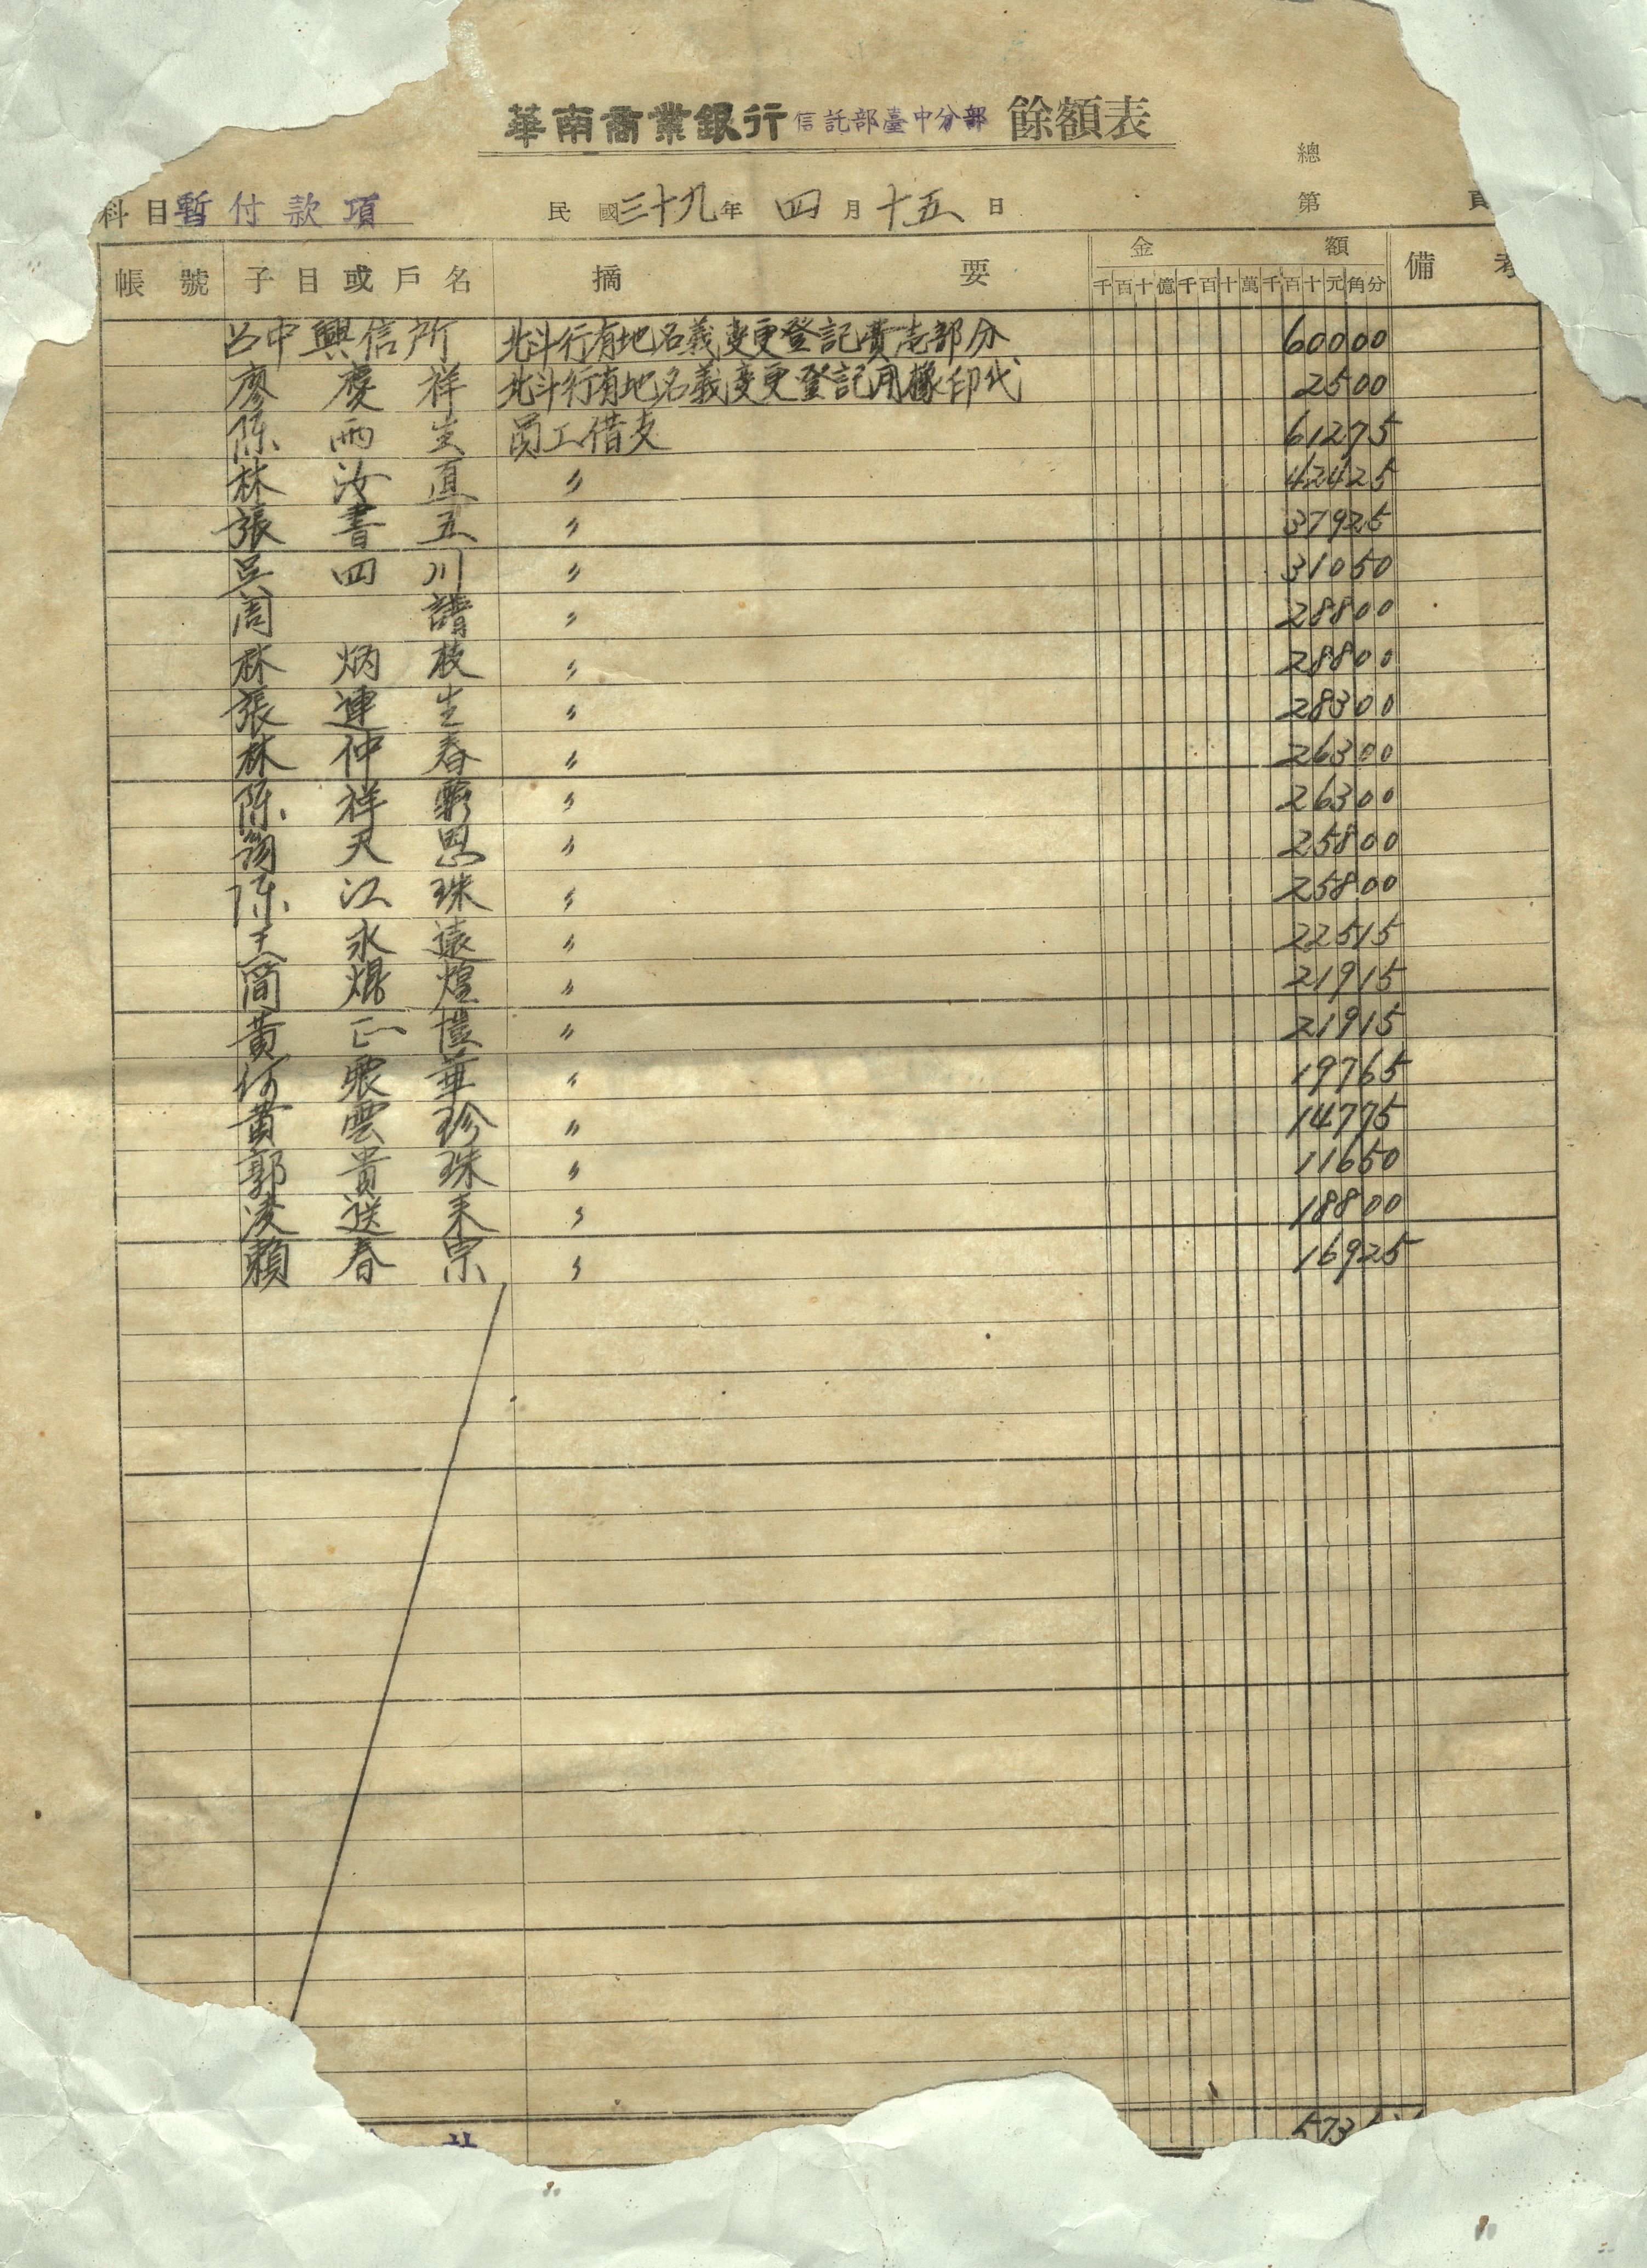 華南商業銀行信託部臺中分部餘額表
總
科目暫付款項 民國三十九年 四月十五日 第 頁
帳號 子目或戶名 摘要 金額 備考
千百十億千百十萬千百十元角分
台中興信所 北斗行有地名義变更登記費壱部分 60000
廖慶祥 北斗行有地名義变更登記用橡印代 2500
陳兩 員工借支 61275
林汝直 〃 42425
張書五 〃 37925
吳四川 〃 31050
周 〃 28800
林炳枝 〃 28800
張連生 〃 28300
林仲春 〃 26300
陳祥 〃 26300
天恩 〃 25800
陳江珠 〃 25800
王永遠 〃 22515
簡焜煌 〃 21915
黃正 〃 21915
何震華 〃 19765
黃雲珍 〃 14775
郭貴珠 〃 11650
凌送来 〃 18800
賴春宗 〃 16925
573